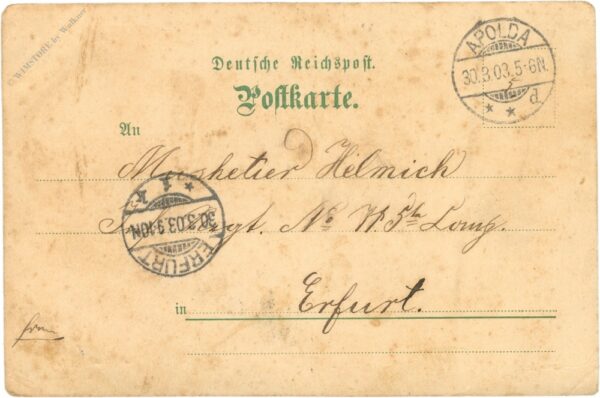 © WIMSTORE by Walkner
APOLDA
30.3.03.5-6N.
* * d.
Deutsche Reichspost.
Postkarte.
An
Musketier Helmich
Regt. No 71 5te Comp.
* 1 *
30.3.03.9-10N.
ERFURT
in Erfurt.